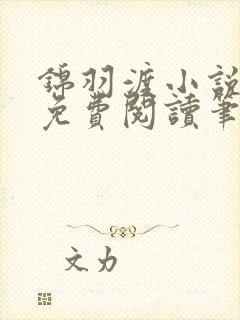 錦羽渡小說
免費閱讀筆
文力